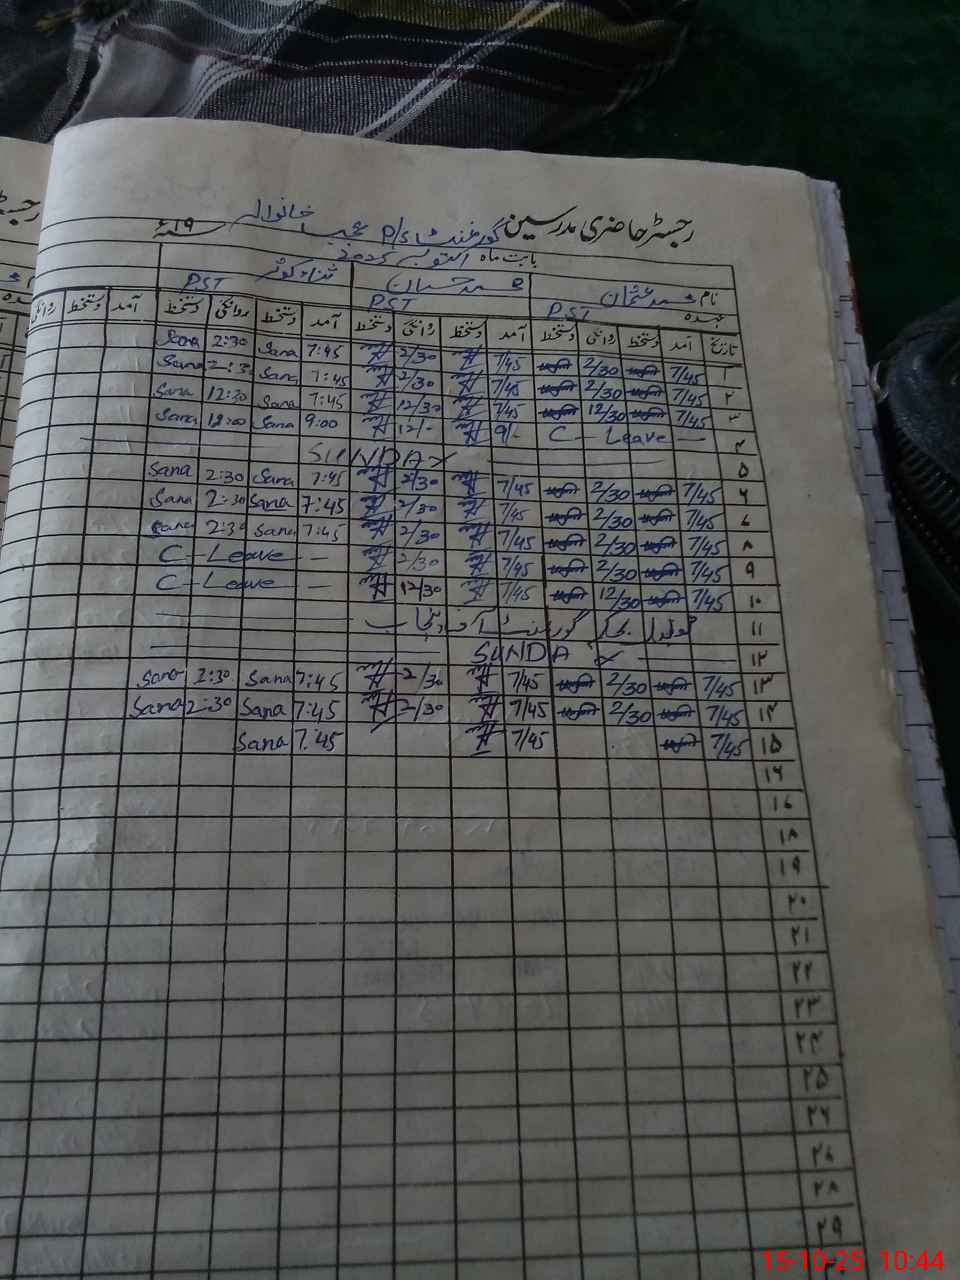 رجسٹر حاضری مدرسین گورنمنٹ P/S عجب خانوالہ ۱۹ء
بابت ماہ اکتوبر 2025
نام محمد عثمان محمد حسان ثناء کوثر
عہدہ PST PST PST
تاریخ آمد دستخط روانگی دستخط آمد دستخط روانگی دستخط آمد دستخط روانگی دستخط آمد دستخط روانگی
۱ 7/45 2/30 7/45 2/30 7:45 Sana 2:30 Sana
۲ 7/45 2/30 7/45 2/30 7:45 Sana 2:30 Sana
۳ 7/45 12/30 7/45 12/30 7:45 Sana 12:30 Sana
۴ C - Leave - 9/- 12/- 9:00 Sana 12:00 Sana
۵ SUNDAY
۶ 7/45 2/30 7/45 2/30 7:45 Sana 2:30 Sana
۷ 7/45 2/30 7/45 2/30 7:45 Sana 2:30 Sana
۸ 7/45 2/30 7/45 2/30 7:45 Sana 2:30 Sana
۹ 7/45 2/30 7/45 2/30 C - Leave -
۱۰ 7/45 12/30 7/45 12/30 C - Leave -
۱۱ گورنمنٹ آف پنجاب
۱۲ SUNDAY
۱۳ 7/45 2/30 7/45 2/30 7:45 Sana 2:30 Sana
۱۴ 7/45 2/30 7/45 2/30 7:45 Sana 2:30 Sana
۱۵ 7/45 7/45 7:45 Sana
۱۶
۱۷
۱۸
۱۹
۲۰
۲۱
۲۲
۲۳
۲۴
۲۵
۲۶
۲۷
۲۸
۲۹
15-10-25 10:44